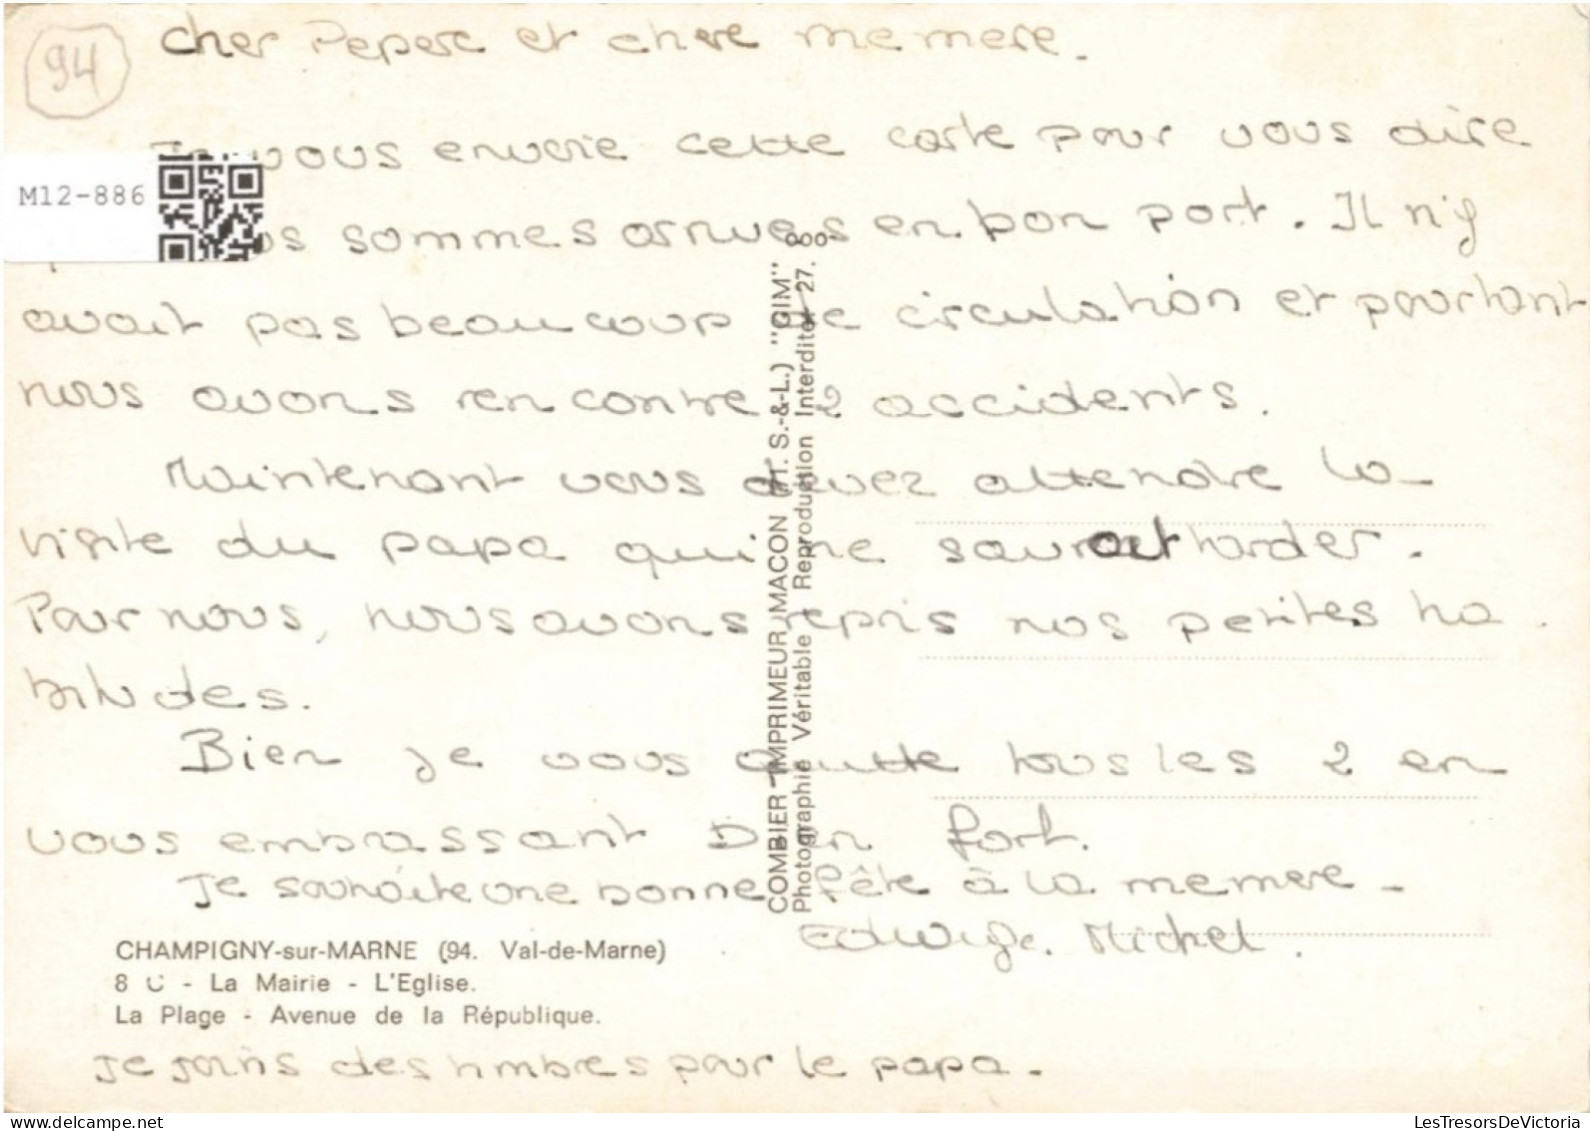 94
cher Pepere et chere memere.
Je vous envoie cette carte pour vous dire
sommes arrives en bon port. Il n'y
avait pas beaucoup de circulation et pourtant
nous avons rencontre 2 accidents.
Maintenant vous devez attendre la
visite du papa qui ne saurait tarder.
Pour nous, nous avons repris nos petites ha
bitudes.
Bien je vous quitte tous les 2 en
vous embrassant bien fort.
Je souhaite une bonne fête à la memere -
Edwige. Michel.
je joins des timbres pour le papa.
M12-886
COMBIER IMPRIMEUR MACON (S.-&-L.) "CIM"
Photographie Véritable Reproduction Interdite 27.
CHAMPIGNY-sur-MARNE (94. Val-de-Marne)
8 C - La Mairie - L'Eglise.
La Plage - Avenue de la République.
LesTresorsDeVictoria
delcampe.net